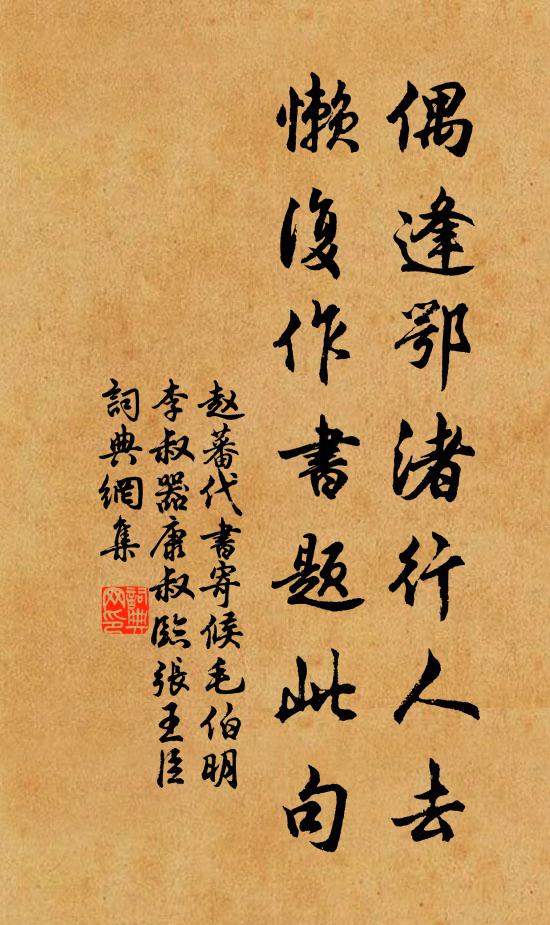 偶逢鄂渚行人去
懶復作書題此句
赵蕃代書寄候毛伯明
李叔器康叔臨張王臣
詞典網集
詞典网印